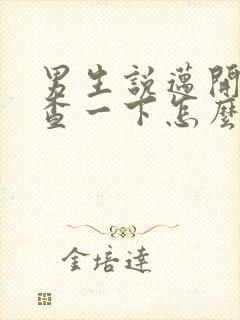 男生說邁開
查一下怎麼
金培達